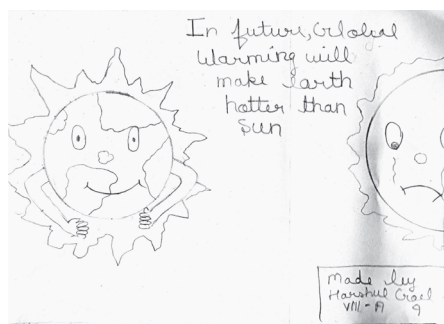 In future, Global
Warming will
make earth
hotter than
Sun
Made by
Harshul Goel
VIII-A
9